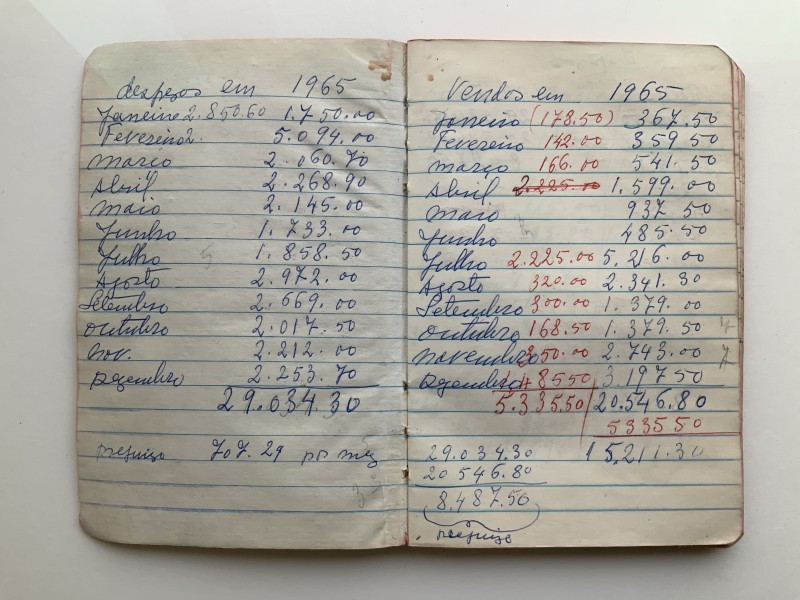 despesas em 1965
Janeiro 2.850.60 1.750.00
Fevereiro 2. 5.094.00
março 2.060.70
Abril 2.268.90
maio 2.145.00
Junho 1.733.00
Julho 1.858.50
Agosto 2.972.00
Setembro 2.669.00
outubro 2.017.50
nov. 2.212.00
Dezembro 2.253.70
29.034.30
prejuizo 707.29 por mez
Vendas em 1965
Janeiro (178.50) 367.50
Fevereiro 142.00 359 50
março 166.00 541.50
Abril 2.225.00 1.599.00
maio 937 50
Junho 485.50
Julho 2.225.00 5.216.00
Agosto 320.00 2.341.30
Setembro 300.00 1.379.00
outubro 168.50 1.379.50
novembro 350.00 2.743.00
Dezembro 1.485 50 3.197 50
5.335.50 20.546.80
5335 50
29.034.30 15,211.30
20 546.80
8.487.50
prejuizo